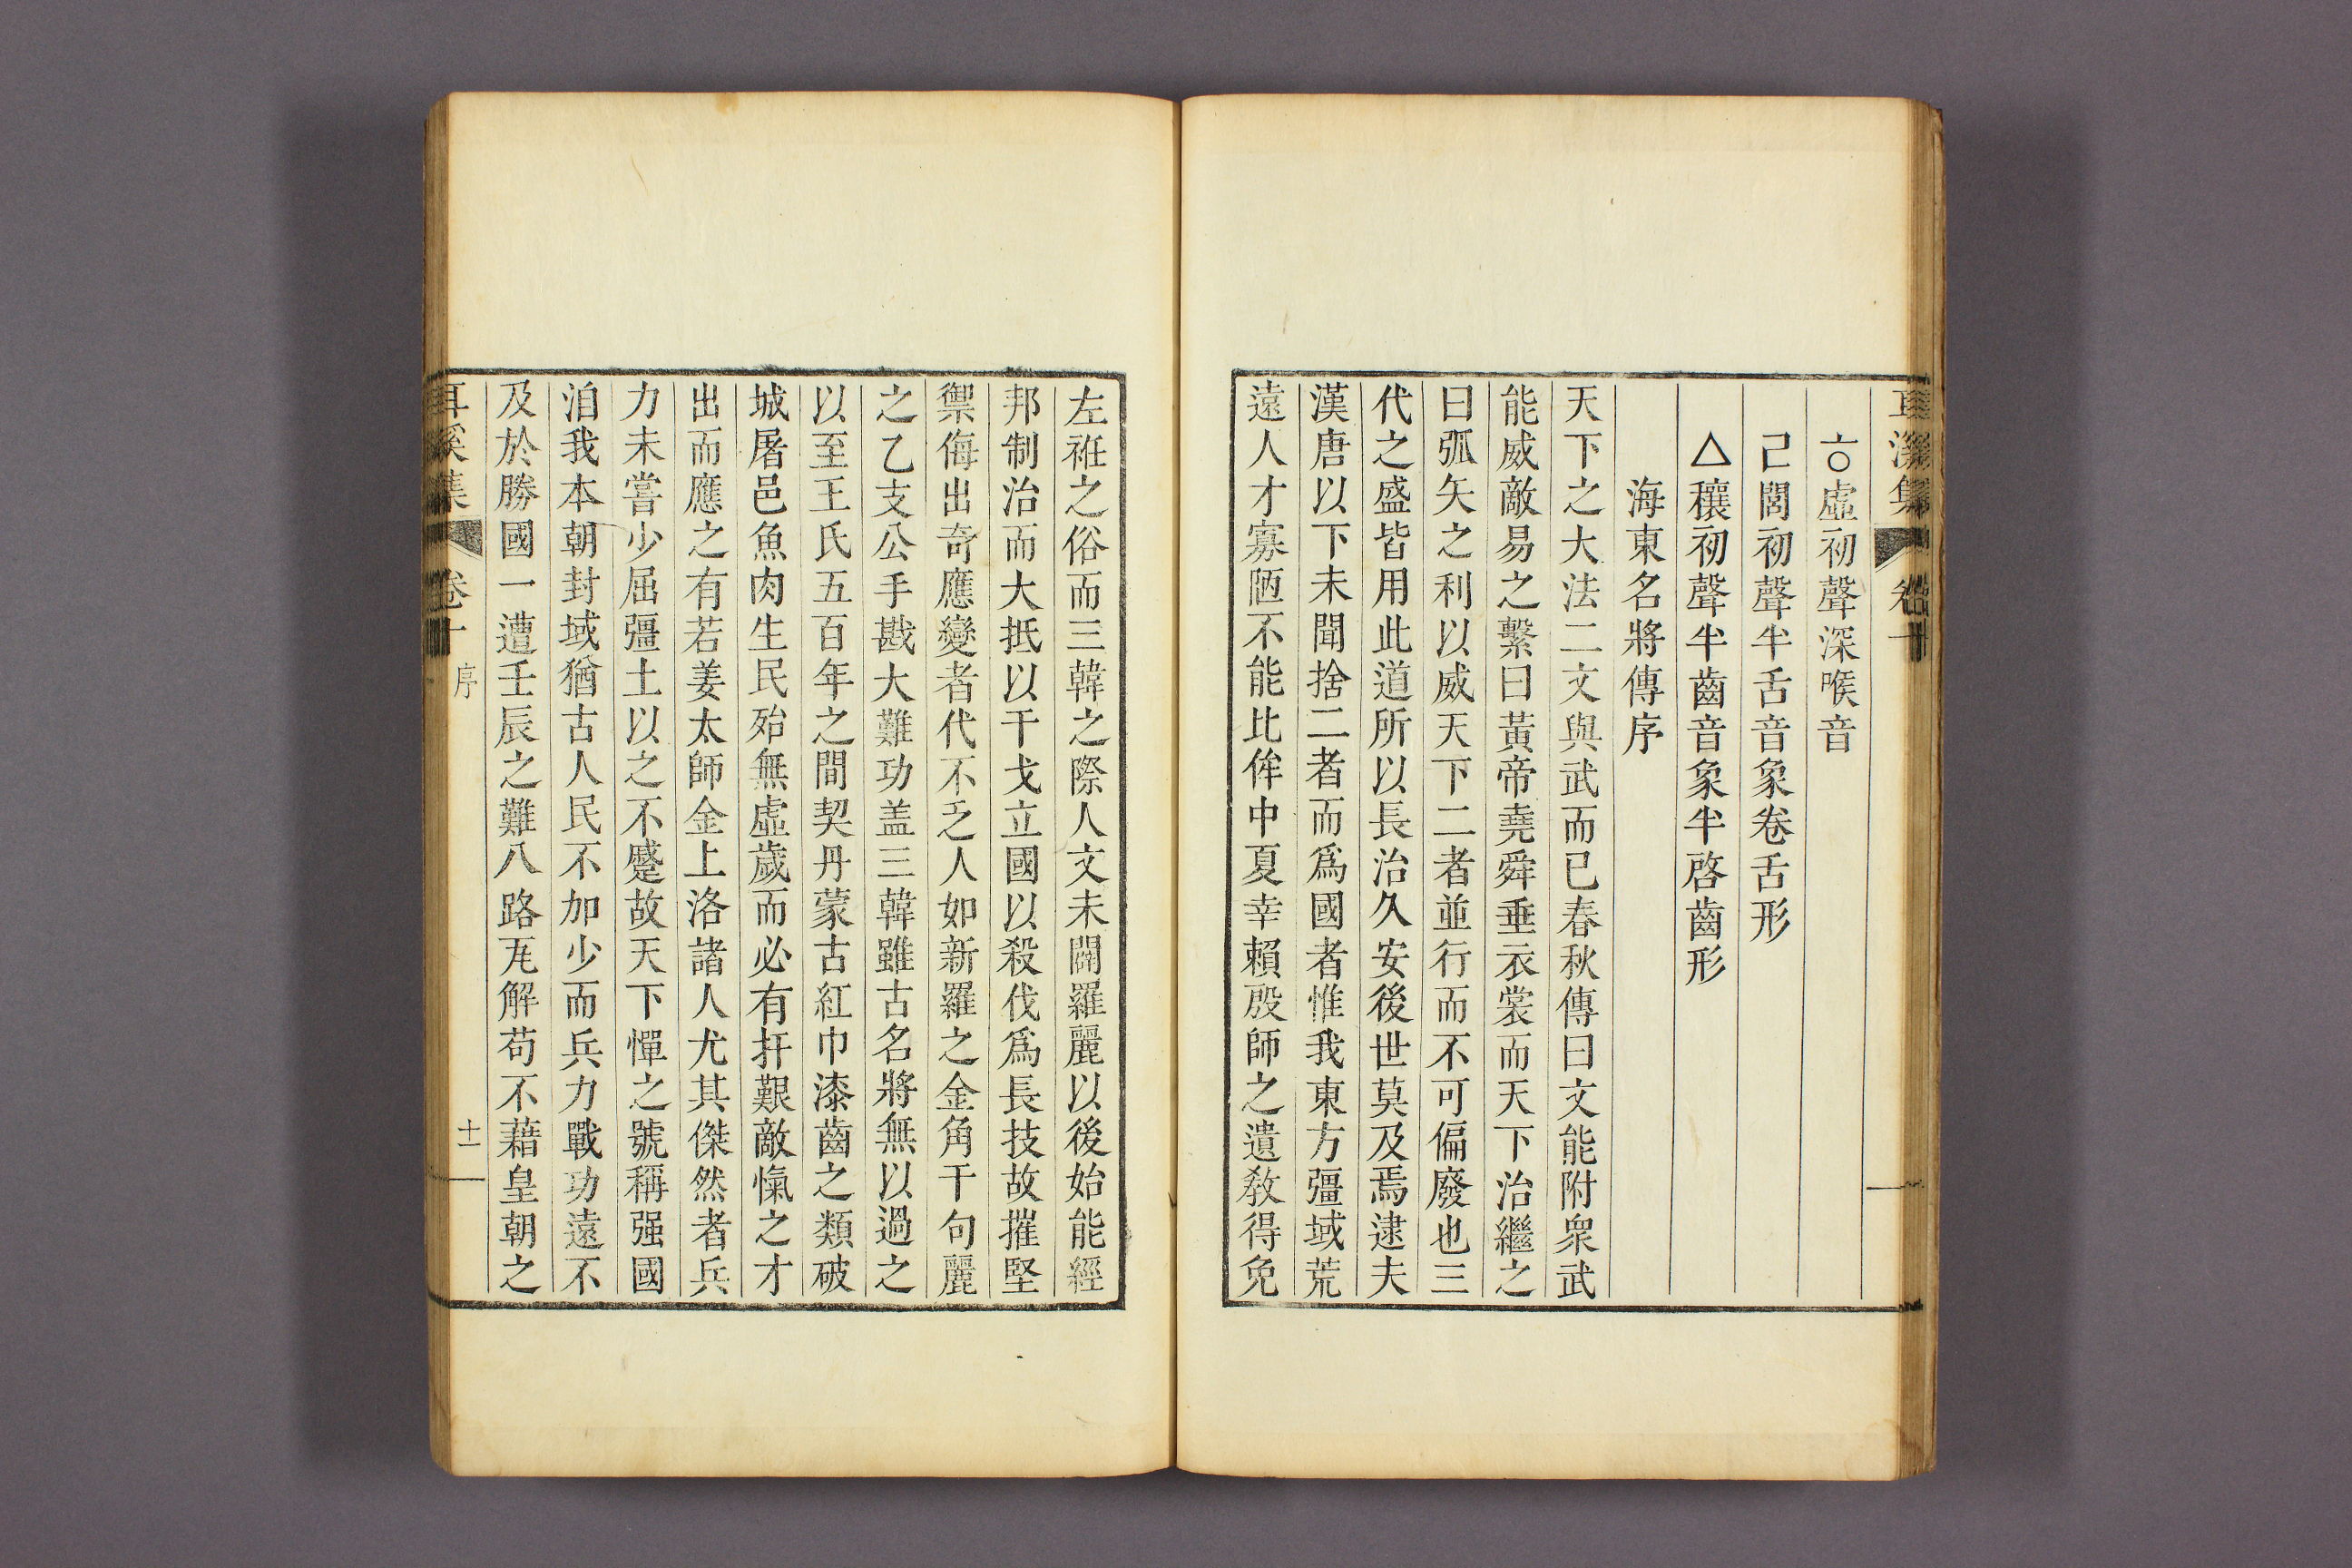 耳溪集 卷十
ㆆ虛初聲深喉音
ㄹ閭初聲半舌音象卷舌形
△穰初聲半齒音象半啓齒形
海東名將傳序
天下之大法二文與武而已春秋傳曰文能附衆武
能威敵易之繫曰黃帝堯舜垂衣裳而天下治繼之
曰弧矢之利以威天下二者並行而不可偏廢也三
代之盛皆用此道所以長治久安後世莫及焉逮夫
漢唐以下未聞捨二者而爲國者惟我東方彊域荒
遠人才寡陋不能比侔中夏幸賴殷師之遺敎得免
左袵之俗而三韓之際人文未闢羅麗以後始能經
邦制治而大抵以干戈立國以殺伐爲長技故摧堅
禦侮出奇應變者代不乏人如新羅之金角干句麗
之乙支公手戡大難功盖三韓雖古名將無以過之
以至王氏五百年之間契丹蒙古紅巾漆齒之類破
城屠邑魚肉生民殆無虛歲而必有扞艱敵愾之才
出而應之有若姜太師金上洛諸人尤其傑然者兵
力未嘗少屈彊土以之不蹙故天下憚之號稱强國
洎我本朝封域猶古人民不加少而兵力戰功遠不
及於勝國一遭壬辰之難八路瓦解苟不藉皇朝之
耳溪集 卷十 序 十一